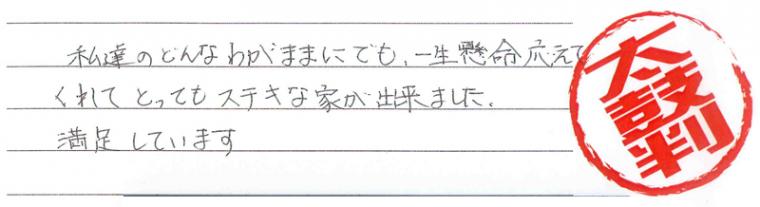 私達のどんなわがままにでも、一生懸命応えて
くれてとってもステキな家が出来ました。
満足しています
太鼓判